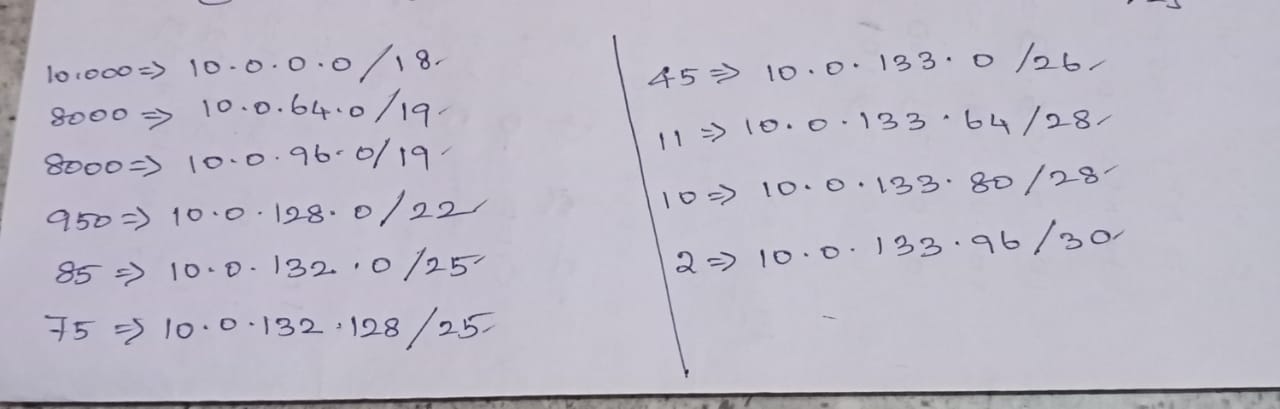 10,000 => 10.0.0.0/18
8000 => 10.0.64.0/19
8000 => 10.0.96.0/19
950 => 10.0.128.0/22
85 => 10.0.132.0/25
75 => 10.0.132.128/25
45 => 10.0.133.0/26
11 => 10.0.133.64/28
10 => 10.0.133.80/28
2 => 10.0.133.96/30